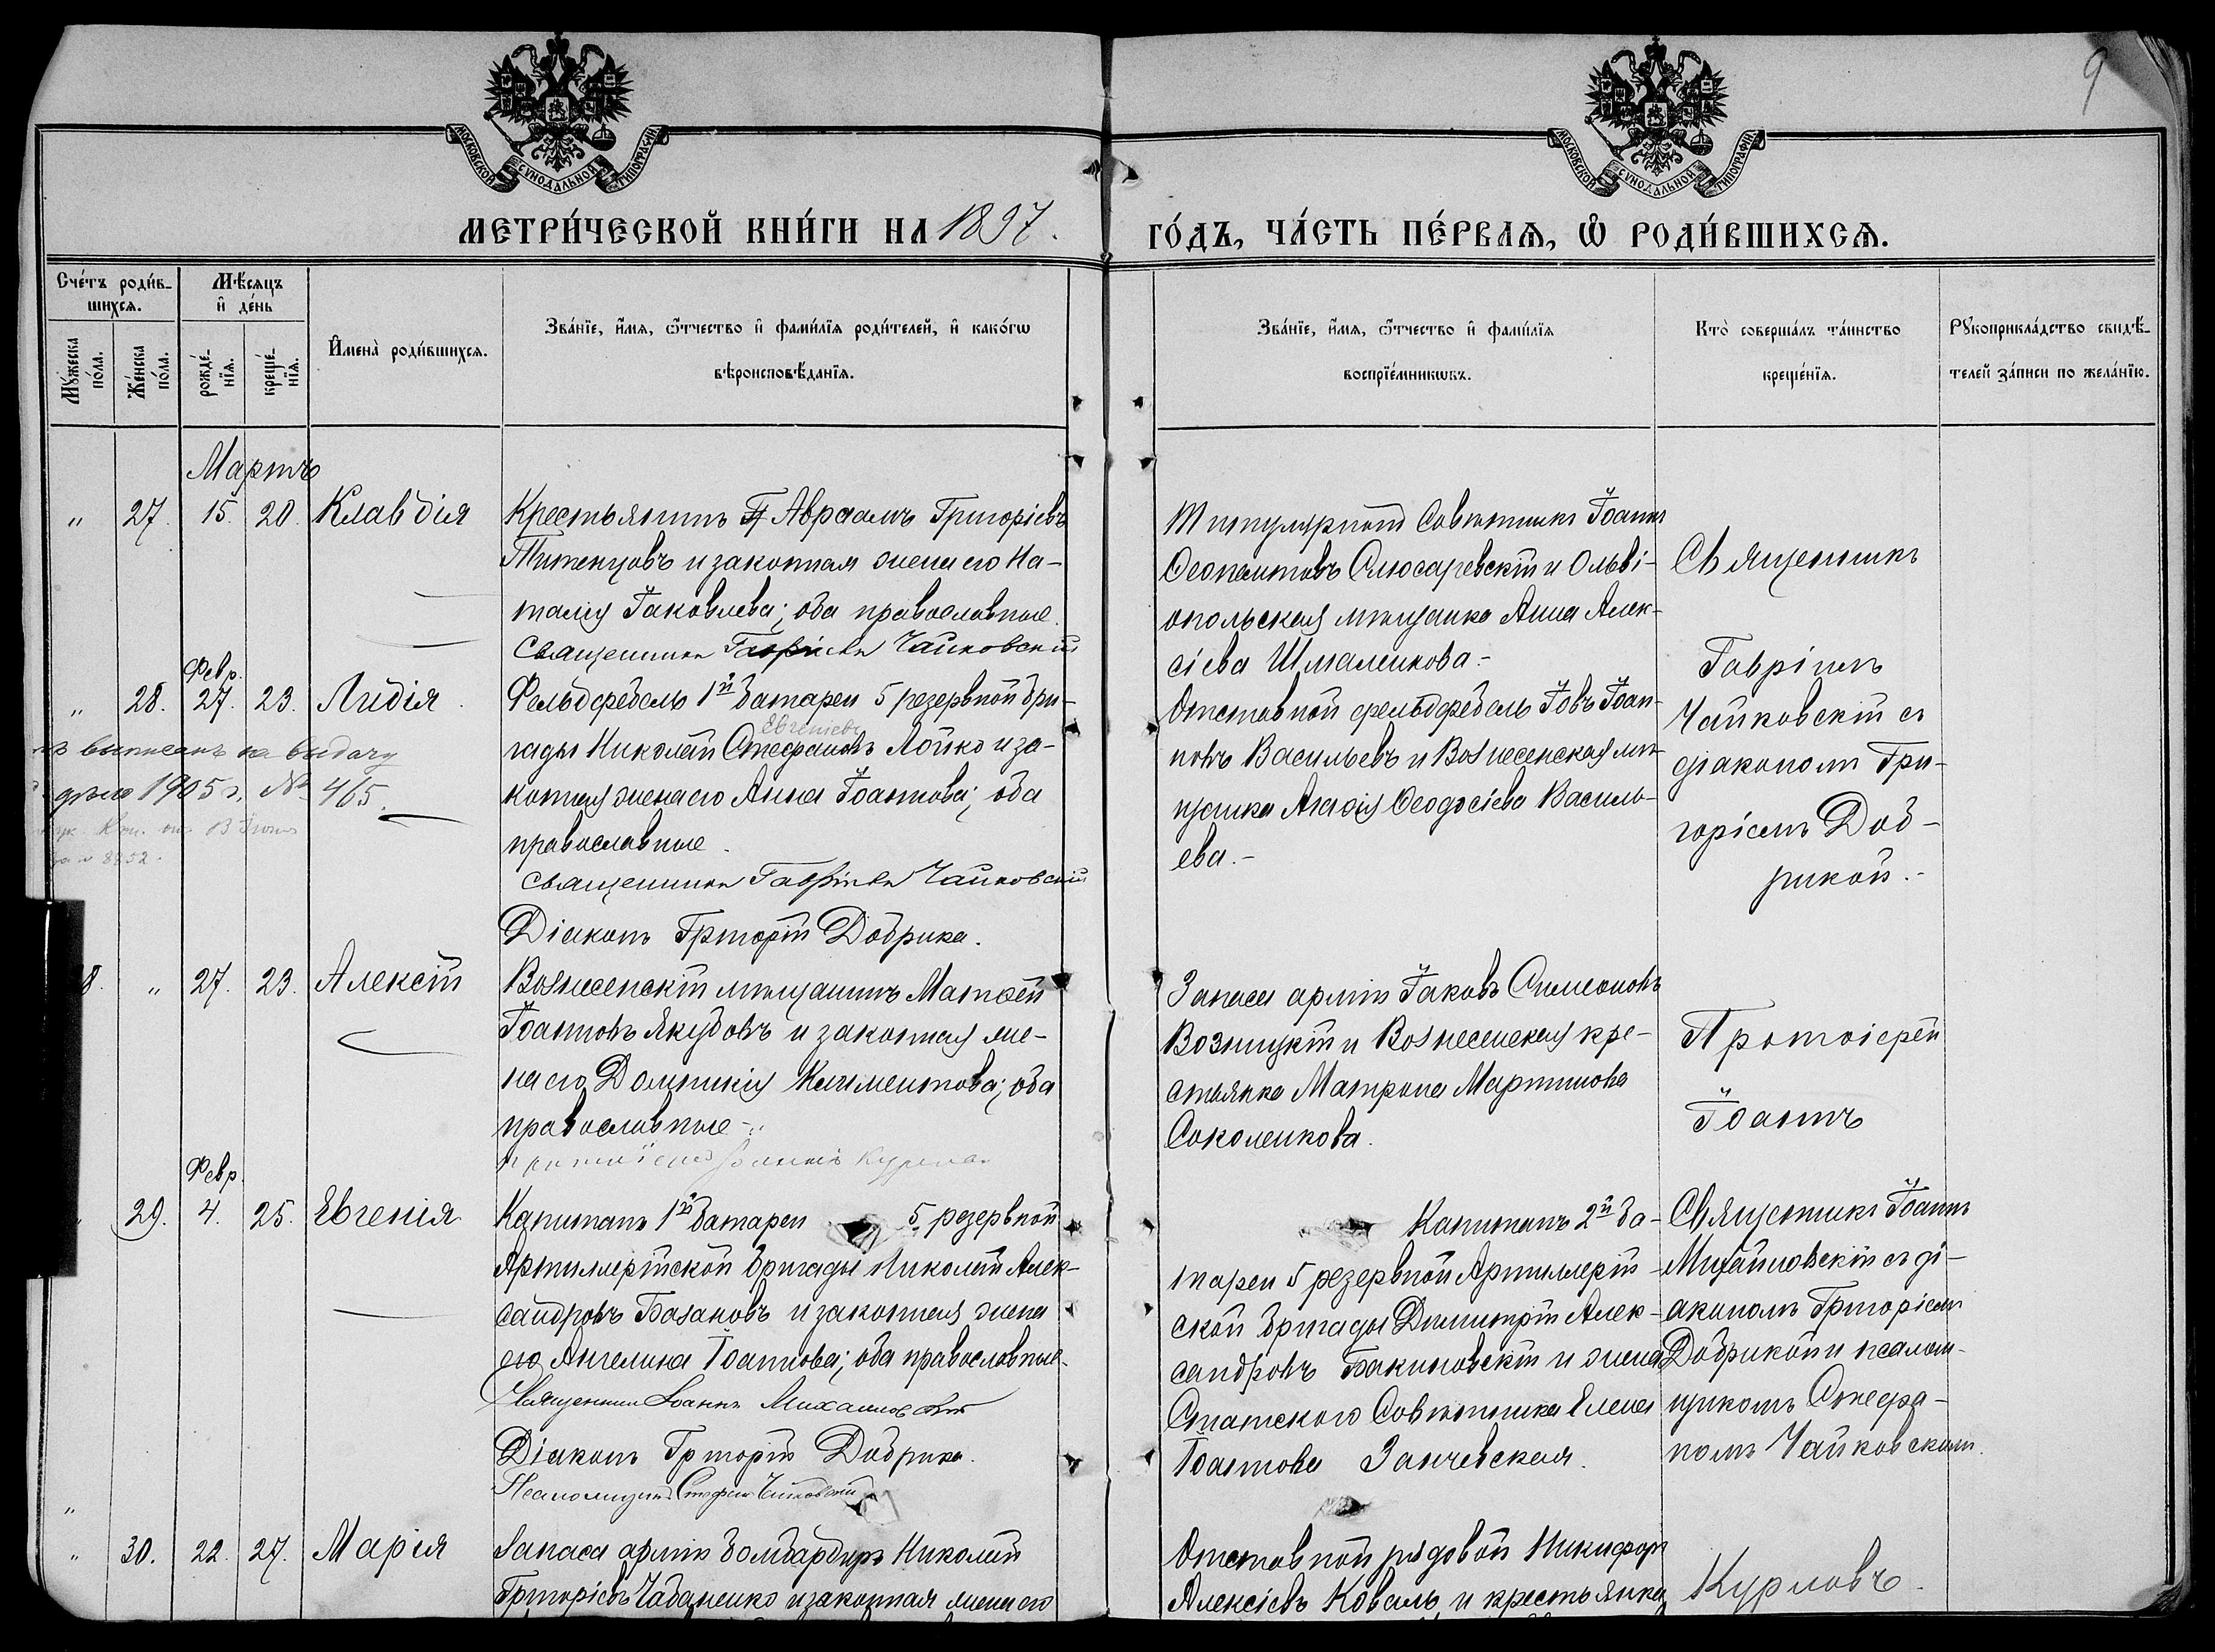 9
МОСКОВСКОЙ СѴНОДАЛЬНОЙ ТИПОГРАФІИ
МОСКОВСКОЙ СѴНОДАЛЬНОЙ ТИПОГРАФІИ
МЕТРИ́ЧЕСКОЙ КНИ́ГИ НА 1897. ГО́ДЪ, ЧА́СТЬ ПЕ́РВАѦ, Ѡ РОДИ́ВШИХСѦ.
Сче́тъ роди́в-
шихсѧ.
Мꙋ́жеска по́ла.
Же́нска по́ла.
Мѣ́сѧцъ
и҆ де́нь
рожде́-
нїѧ.
креще́-
нїѧ.
И҆мена̀ роди́вшихсѧ.
Зва́нїе, и҆́мѧ, ѻ҆́тчество и҆ фами́лїѧ роди́телей, и҆ како́гѡ
вѣроисповѣ́данїѧ.
Зва́нїе, и҆́мѧ, ѻ҆́тчество и҆ фами́лїѧ
воспрїе́мникѡвъ.
Кто̀ соверша́лъ та́инство
креще́нїѧ.
Рꙋкоприкла́дство свидѣ́-
телей за́писи по жела́нїю.
Мартъ
„ 27. 15. 20. Клавдія
Крестьянинъ Авраамъ Григоріевъ
Титенцовъ и законная жена его На-
талія Іаковлева; оба православные.
Священникъ Гавріилъ Чайковскій
Титулярный Совѣтникъ Іоаннъ
Леонтовъ Слюсаревскій и Ольві-
опольская мѣщанка Анна Алек-
сіева Шмаленкова.-
Священникъ
Гавріилъ
Чайковскій съ
діакономъ Гри-
горіемъ Доб-
рикой.-
Февр.
„ 28. 27. 23. Лидія.
Фельдфебель 1й батареи 5 резервной бри-
Евгеніевъ
гады Николай Стефановъ Лойко и за-
конная жена его Анна Іоаннова; оба
православные.
Священникъ Гавріилъ Чайковскій
Діаконъ Григорій Добрика.
выписанъ на выдачу
дѣло 1905 г. № 465.
8852.
Отставной фельдфебель Іовъ Іоан-
новъ Васильевъ и Вознесенская мѣ-
щанка Агафія Ѳеодосіева Василь-
ева.-
8. „ 27. 23. Алексій
Вознесенскій мѣщанинъ Матѳей
Іоанновъ Якубовъ и законная же-
на его Домникія Климентова; оба
православные-
протоіерей Іоаннъ Курловъ
Запаса арміи Іаковъ Симеоновъ
Возницкій и Вознесенская кре-
стьянка Матрона Мартинова
Соколенкова.
Протоіерей
Іоаннъ
Февр.
29. 4. 25. Евгенія
Капитанъ 1й батареи 5 резервной
Артиллерійской бригады Николай Алек-
сандровъ Базановъ и законная жена
его Ангелина Іоаннова; оба православные.
Священникъ Іоаннъ Михайловскій
Діаконъ Григорій Добрика.
Псаломщикъ Стефанъ Чайковскій
Капитанъ 2й ба-
тареи 5 резервной Артиллерій-
ской бригады Димитрій Алек-
сандровъ Бакиновскій и жена
Статскаго Совѣтника Елена
Іоаннова Занчевская.
Священникъ Іоаннъ
Михайловскій съ ді-
акономъ Григоріемъ
Добрикой и псалом-
щикомъ Стефа-
номъ Чайковскимъ.
„
„ 30. 22. 27. Марія
Запаса арміи бомбардиръ Николай
Григоріевъ Чабаненко и законная жена его
Отставной рядовой Никифоръ
Алексіевъ Коваль и крестьянка
Курловъ.